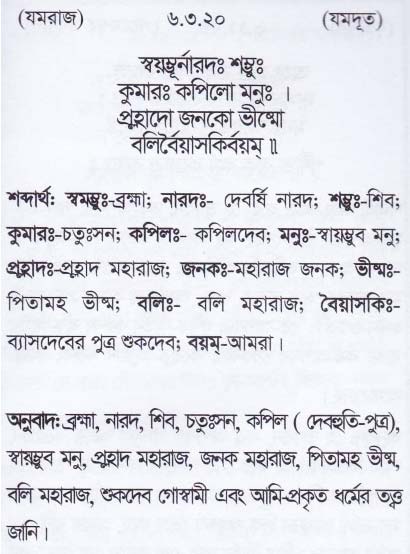 (যমরাজ) ৬.৩.২০ (যমদূত)
স্বয়ম্ভূর্নারদঃ শম্ভুঃ
কুমারঃ কপিলো মনুঃ ।
প্রহ্লাদো জনকো ভীষ্মো
বলির্বৈয়াসকির্বয়ম্ ॥
শব্দার্থঃ স্বমম্ভুঃ-ব্রহ্মা; নারদঃ- দেবর্ষি নারদ; শম্ভুঃ-শিব;
কুমারঃ-চতুঃসন; কপিলঃ- কপিলদেব; মনুঃ-স্বায়ম্ভুব মনু;
প্রহ্লাদঃ-প্রহ্লাদ মহারাজ; জনকঃ-মহারাজ জনক; ভীষ্মঃ-
পিতামহ ভীষ্ম; বলিঃ- বলি মহারাজ; বৈয়াসকিঃ-
ব্যাসদেবের পুত্র শুকদেব; বয়ম্-আমরা ।
অনুবাদঃ ব্রহ্মা, নারদ, শিব, চতুঃসন, কপিল ( দেবহুতি-পুত্র),
স্বায়ম্ভুব মনু, প্রহ্লাদ মহারাজ, জনক মহারাজ, পিতামহ ভীষ্ম,
বলি মহারাজ, শুকদেব গোস্বামী এবং আমি-প্রকৃত ধর্মের তত্ত্ব
জানি ।